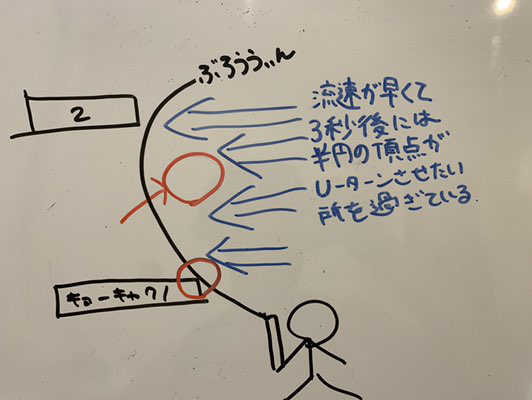 ぶろううぃん
2
流速が早くて
3秒後には
半円の頂点が
Uーターンさせたい
所を過ぎている
キョーキャク1